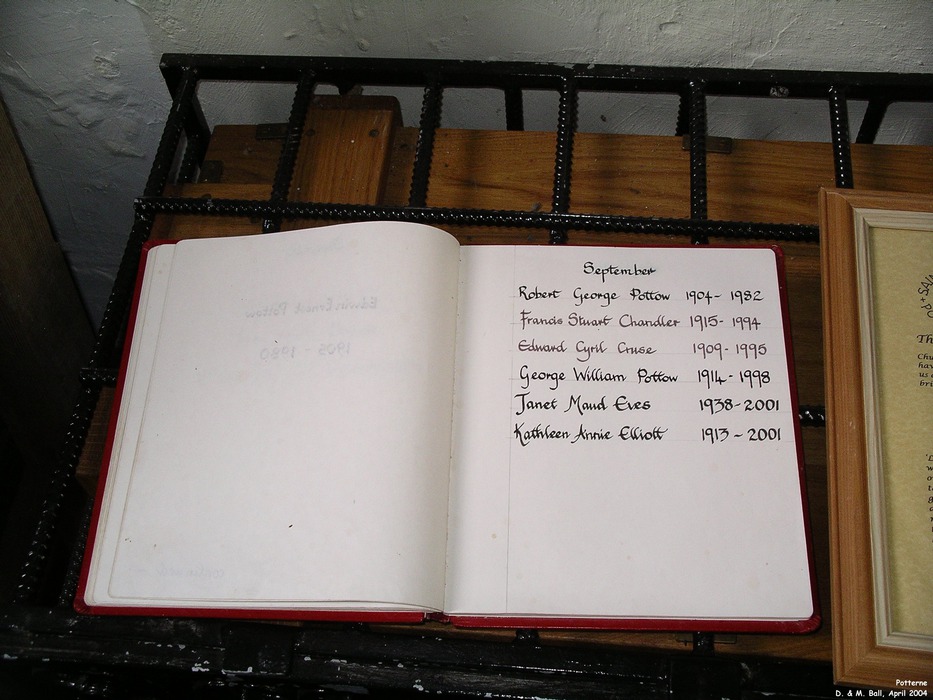 September
Robert George Pottow 1904 - 1982
Francis Stuart Chandler 1915 - 1994
Edward Cyril Cruse 1909 - 1995
George William Pottow 1914 - 1998
Janet Maud Eves 1938 - 2001
Kathleen Annie Elliott 1913 - 2001
Edwin Ernest Pottow
1905 - 1980
Potterne
D. & M. Ball, April 2004